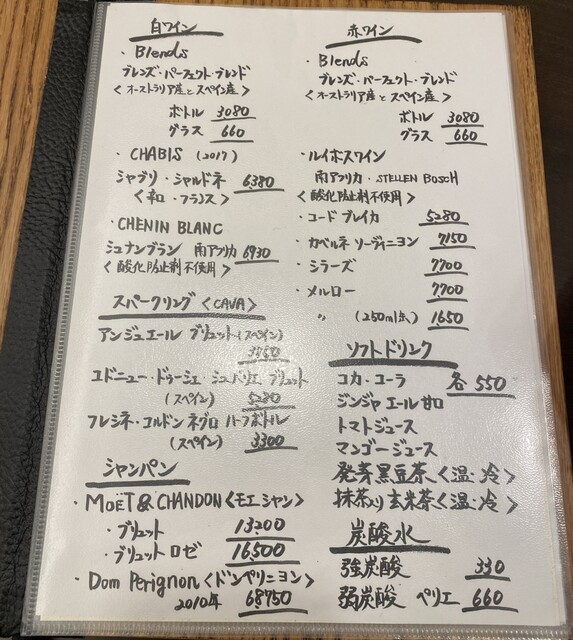 白ワイン
・Blends
ブレンズ・パーフェクト・ブレンド
<オーストラリア産とスペイン産>
ボトル 3,080
グラス 660
・CHABIS (2017)
シャブリ・シャルドネ 6380
<和・フランス>
・CHENIN BLANC
シュナンブラン 南アフリカ 6930
<酸化防止剤不使用>
スパークリング <CAVA>
アンジュエール ブリュット (スペイン)
コドニュー・ドゥーシェ・シュバリエ ブリュット
(スペイン) 5280
フレシネ・コルドン ネグロ ハーフボトル
(スペイン) 3300
シャンパン
・MOËT & CHANDON <モエ シャン>
・ブリュット 13200
・ブリュット ロゼ 16500
・Dom Perignon <ドンペリニヨン>
2010年 68750
赤ワイン
・Blends
ブレンズ・パーフェクト・ブレンド
<オーストラリア産とスペイン産>
ボトル 3,080
グラス 660
・ルイボスワイン
南アフリカ・STELLEN BOSCH
<酸化防止剤不使用>
・コード ブレイカ 5280
・カベルネ ソーヴィニヨン 7150
・シラーズ 7700
・メルロー 7,700
〃 (250ml缶) 1650
ソフトドリンク
コカ・コーラ 各 550
ジンジャエール 甘口
トマトジュース
マンゴージュース
発芽黒豆茶 <温・冷>
抹茶入り玄米茶 <温・冷>
炭酸水
強炭酸 330
弱炭酸 ペリエ 660